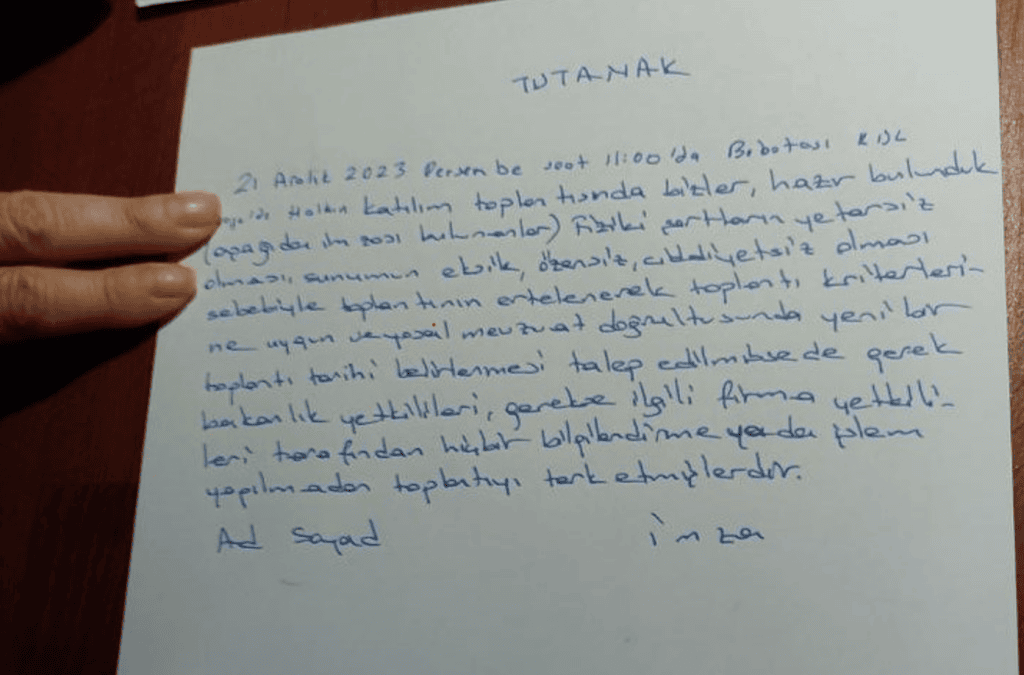 TUTANAK
21 Aralık 2023 Perşembe saat 11:00'da Babatası
Halkın katılım toplantısında bizler, hazır bulunduk
(aşağıda imzası bulunanlar) Fiziki şartların yetersiz
olması, sunumun eksik, özensiz, ciddiyetsiz olması
sebebiyle toplantının ertelenerek toplantı kriterleri-
ne uygun ve yasal mevzuat doğrultusunda yeni bir
toplantı tarihi belirlenmesi talep edilmişse de gerek
bakanlık yetkilileri, gerekse ilgili firma yetkili-
leri tarafından hiçbir bilgilendirme yada işlem
yapılmadan toplantıyı terk etmişlerdir.
Ad Soyad
İmza